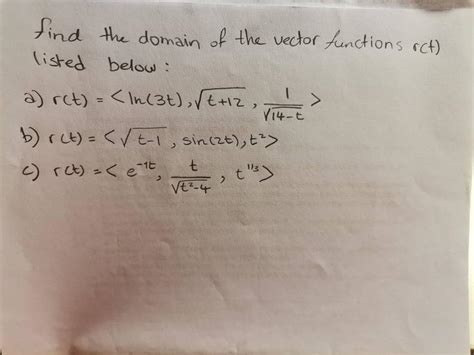 find the domain of the vector functions r(t)
listed below:
a) r(t) = <ln(3t), √(t+12), 1/√(14-t)>
b) r(t) = <√(t-1), sin(2t), t²>
c) r(t) = <e^(-1t), t/√(t²-4), t^(1/3)>